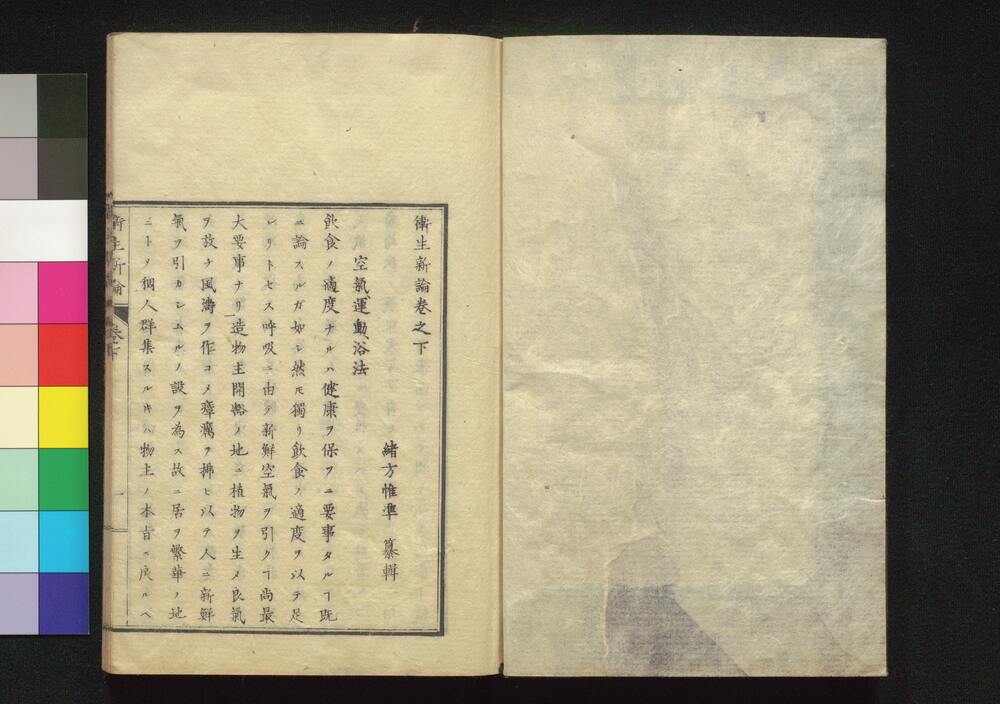 衛生新論卷之下
緒方惟準　纂輯
空氣運動浴法
飲食ノ適度ナルハ健康ヲ保ツニ要事タルヿ既
ニ論スルガ如シ然𪜈獨リ飲食ノ適度ヲ以テ足
レリトセス呼吸ニ由テ新鮮空氣ヲ引クヿ尚最
大要事ナリ造物主開豁ノ地ニ植物ヲ生メ良氣
ヲ放チ風濤ヲ作コメ瘴癘ヲ拂ヒ以テ人ニ新鮮
氣ヲ引カシムルノ設ヲ為ス故ニ居ヲ繁華ノ地
ニトメ稠人群集スルキハ物主ノ本旨ニ戻ルヘ
衛生新論
卷之下
一